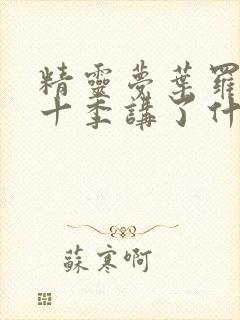 精靈夢葉羅
十季講了什
蘇寒啊